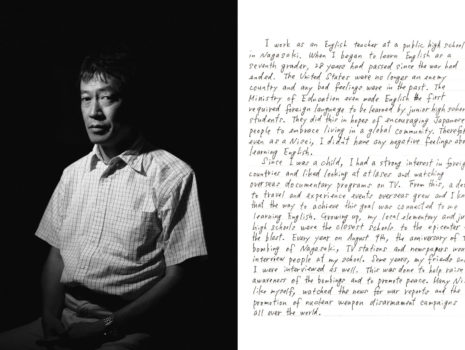 I work as an English teacher at a public high school
in Nagasaki. When I began to learn English as a
seventh grader, 28 years had passed since the war had
ended. The United States were no longer an enemy
country and any bad feelings were in the past. The
Ministry of Education even made English the first
required foreign language to be learned by junior high school
students. They did this in hopes of encouraging Japanese
people to embrace living in a global community. Therefore
even as a Nisei, I didn't have any negative feelings about
learning English.
Since I was a child, I had a strong interest in foreign
countries and liked looking at atlases and watching
overseas documentary programs on TV. From this, a
to travel and experience events overseas grew and I
that the way to achieve this goal was connected to me
learning English. Growing up, my local elementary and
high schools were the closest schools to the epicenter
the blast. Every year on August 9th, the anniversary of
bombing of Nagasaki, TV stations and newspapers
interview people at my school. Some years, my friends
I were interviewed as well. This was done to help raise
awareness of the bombings and to promote peace. Many
like myself, watched the news for war reports and the
promotion of nuclear weapon disarmament campaigns
all over the world.